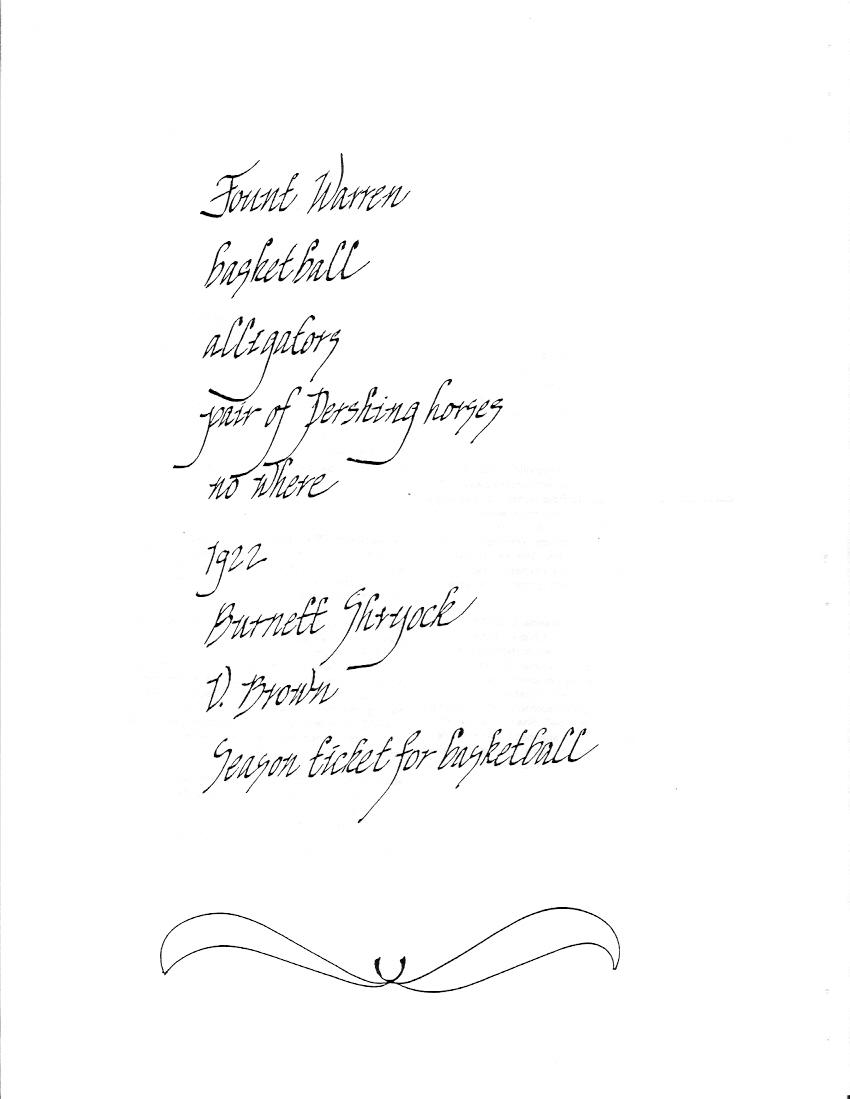 Fount Warren
basketball
alligators
pair of Pershing horses
no where
1922
Burnett Shryock
D. Brown
Season ticket for basketball